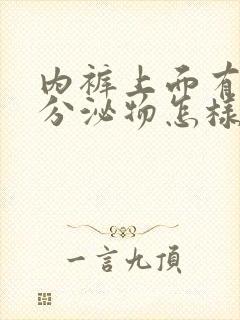 内裤上面有
分泌物怎样
一言九頂